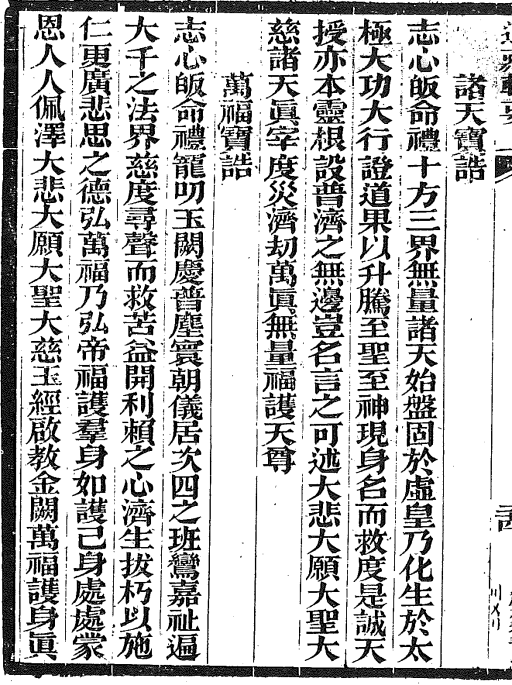 諸天寶誥
志心皈命禮十方三界無量諸天始盤固於虛皇乃化生於太
極大功大行證道果以升騰至聖至神現身名而救度是誠天
授亦本靈根設普濟之無邊豈名言之可述大悲大願大聖大
慈諸天眞宰度災濟刧萬眞無量福護天尊
萬福寶誥
志心皈命禮寵叨玉闕慶普塵寰朝儀居次四之班鸞嘉祉遍
大千之法界慈度尋聲而救苦益開利賴之心濟生拔朽以施
仁更廣悲思之德弘萬福乃弘帝福護羣身如護己身處處蒙
恩人人佩澤大悲大願大聖大慈玉經啟教金闕萬福護身眞